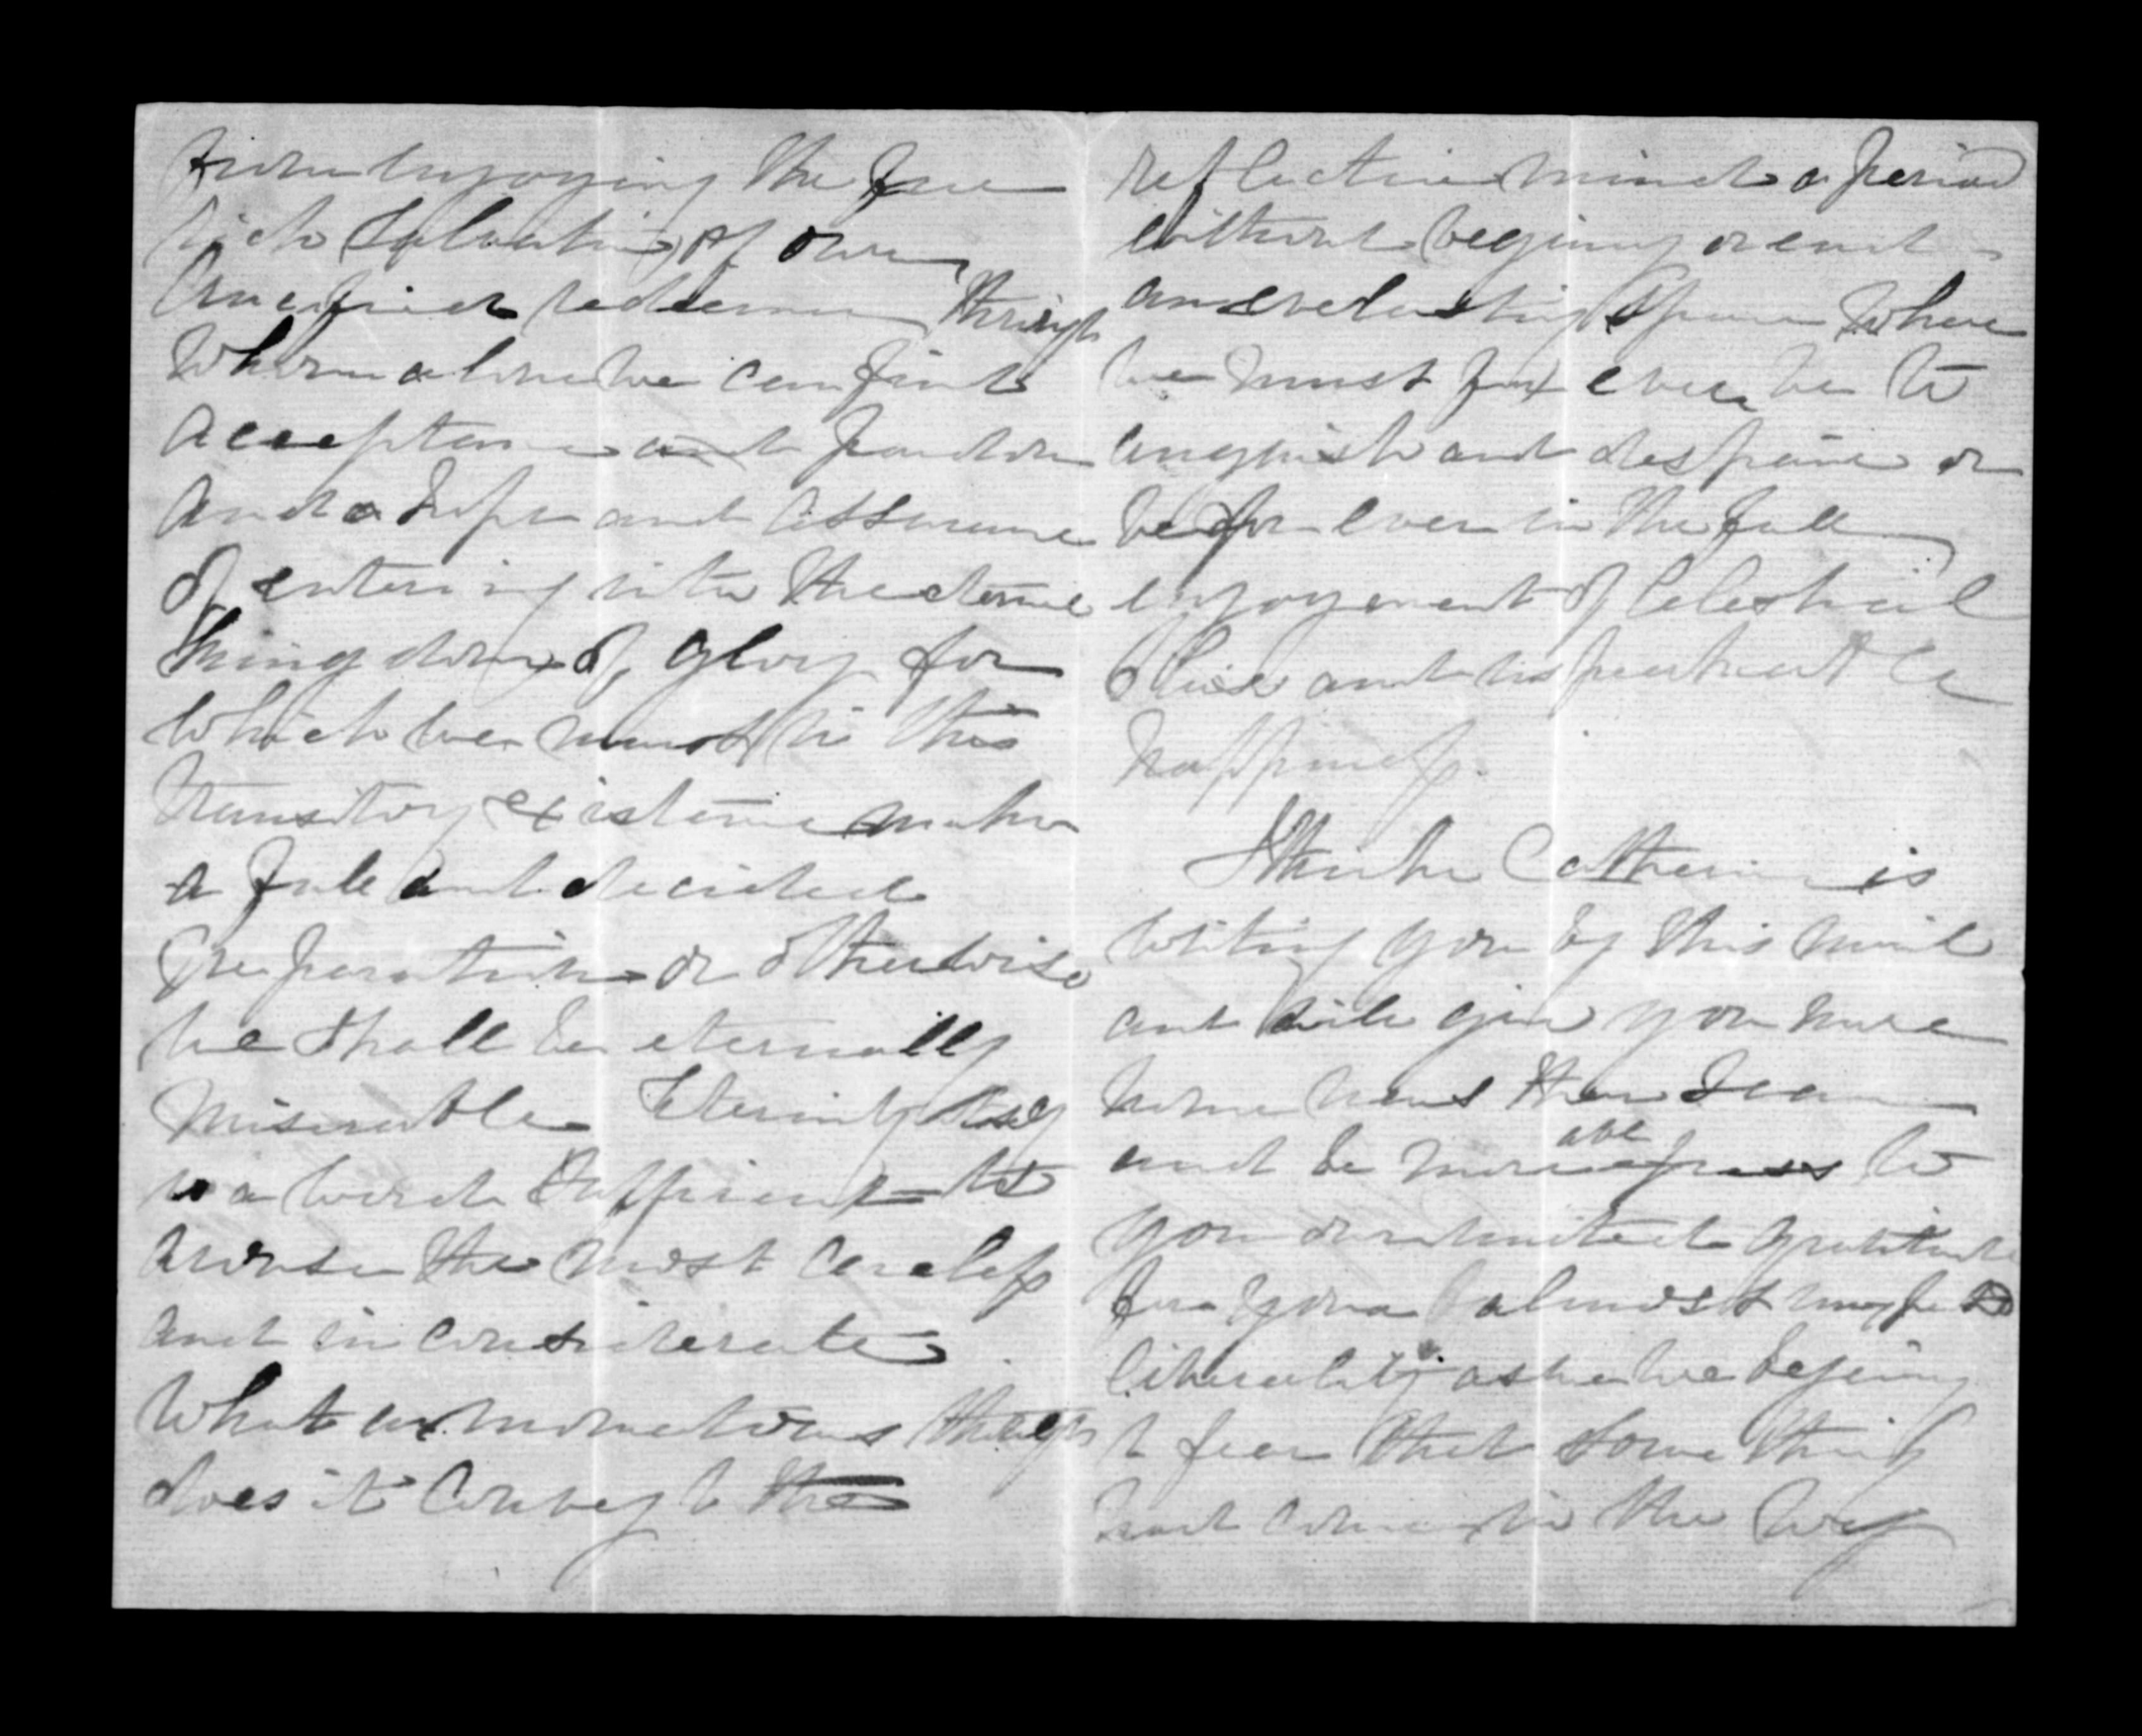 from enjoying the free
rich Salvation of our
Crucified redeemer through
Whom alone we can find
acceptance and pardon
and a hope and assurance
of entering into the eternal
Kingdom of glory for
which we must in this
transitory existence make
a full and decided
preparation or otherwise
we shall be eternally
Miserable Eternity
is a word sufficient to
arouse the most careless
and inconsiderate
What a momentous
does it convey to the
reflective mind a period
without begining or end -
an everlasting Space Where
we must for ever be to
anguish and despair or
be for ever in the full
enjoyment of Celestial
bliss and
happiness.
I think Catherine is
writing you by this mail
and will give you more
home news than I can
and be more able to
you gratitude
for your almost
liberality as we begining
to fear that some thing
had come in the way